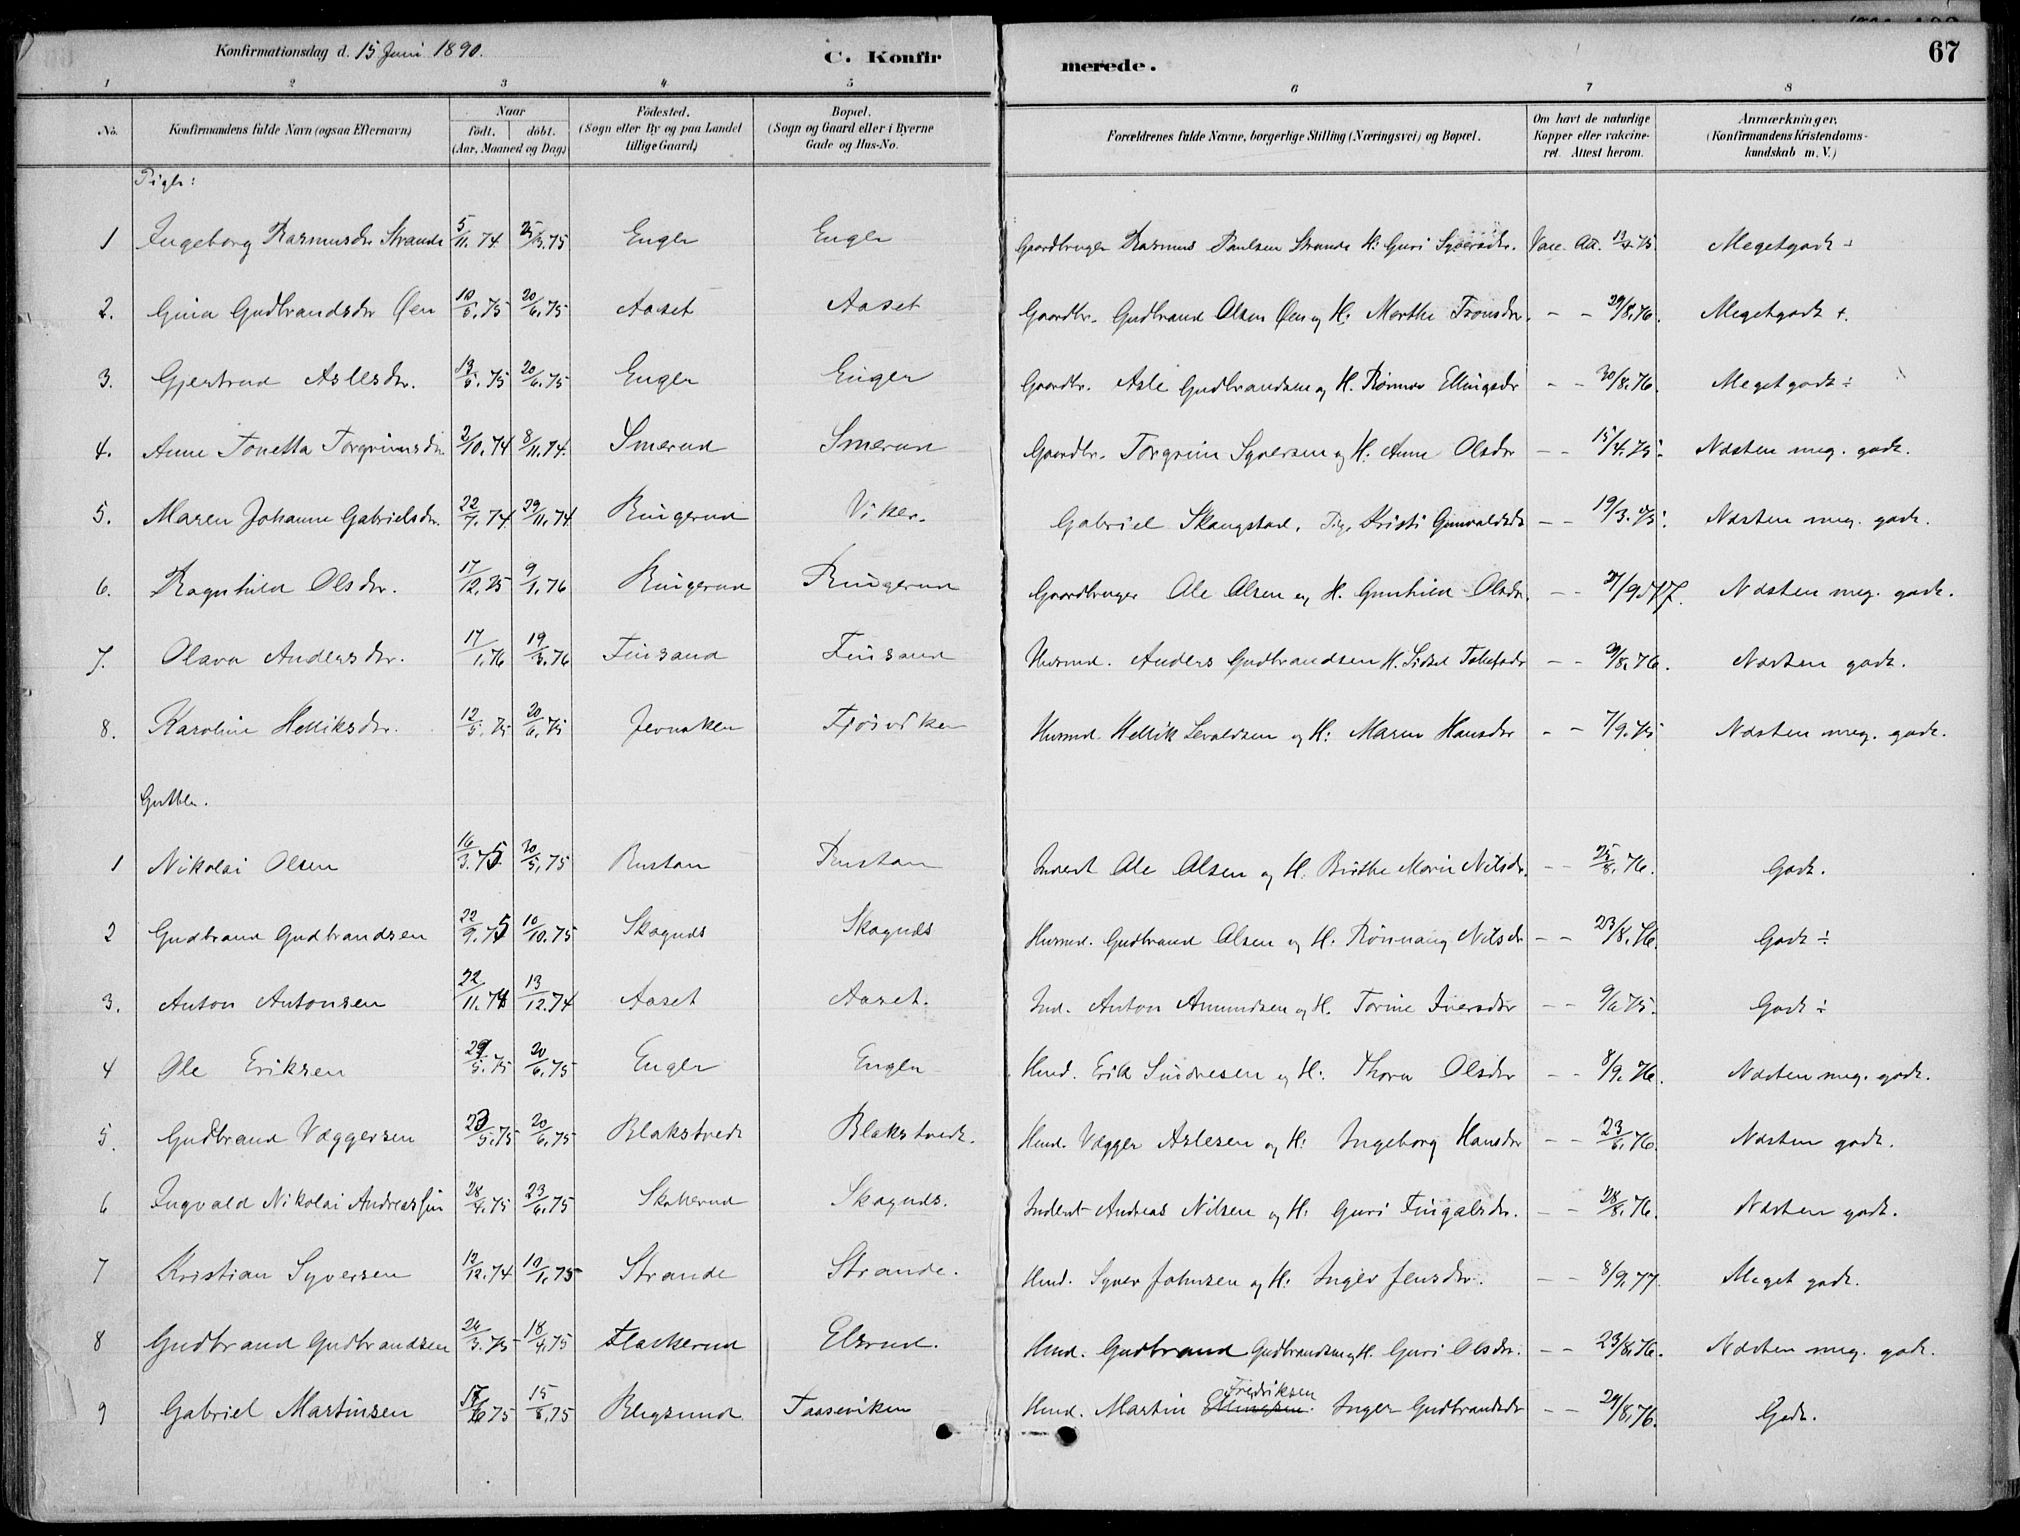 Konfirmationsdag d. 15 Juni 1890.
C. Konfirmerede.
67
1 2 3 4 5 6 7 8
No. Konfirmandens fulde Navn (ogsaa Efternavn) Naar født. døbt. (Aar, Maaned og Dag) Fødested. (Sogn eller By og paa Landet tillige Gaard) Bopæl. (Sogn og Gaard eller i Byerne Gade og Hus-No. Forældrenes fulde Navne, borgerlige Stilling (Næringsvei) og Bopæl. Om havt de naturlige Kopper eller vakcineret. Attest herom. Anmærkninger. (Konfirmandens Kristendomskundskab m. V.)
Piger:
1 Ingeborg Rasmusdr Strande 5/11.74 25/3.75 Enger Enger Gaardbruger Rasmus Paulsen Strande H: Guri Syversdr. Vacc. Att. 75 Megetgodt ÷
2. Gina Gudbrandsdr Øen 10/5.75 20/6.75 Aaset Aaset Gaardbr. Gudbrand Olsen Øen og H: Marthe Tronsdr. – – 29/8.76. Megetgodt +.
3. Gjertrud Aslesdr. 13/5.75 20/6.75 Enger Enger Gaardbr. Asle Gudbrandsen og H. Rønnov Ellingsdr – – 30/8.76. Megetgodt ÷
4. Anne Tonetta Torgrimsdr. 2/10.74 8/11.74. Smerud Smerud Gaardbr. Torgrim Syversen og H. Anne Olsdr – – 15/4.75. Næsten meg. godt.
5. Maren Johanne Gabrielsdr. 22/9.74 29/11.74 Ringerud Viker. Gabriel Skaugstad, Pig. Kristi Gunvaldsdr – – 19/3.75. Næsten meg. godt.
6. Ragnhild Olsdr. 17/12.75 9/1.76 Ringerud Ringerud Gaardbruger Ole Olsen og H. Gunhild Olsdr. – – 27/9.77. Næsten meg. godt.
7. Olava Andersdr. 17/1.76 19/3.76 Finsand Finsand Husmd. Anders Gudbrandsen H. Sidsel – – /8.76. Næsten godt.
8. Karoline Helliksdr. 12/5.75 20/6.75 Jevnaker Fjøsviken Husmd. Hellik Levaldsen og H: Maren Hansdr – – 7/9.75 Næsten meg. godt.
Gutter.
1 Nikolai Olsen 16/3.75 20/5.75 Rustan Rustan Inderst Ole Olsen og H. Birthe Marie Nilsdr. – – 25/8.76. Godt.
2 Gudbrand Gudbrandsen 22/9.75 10/10.75 Skagnds Skagnds Husmd. Gudbrand Olsen og H: Rønnaug Nilsdr – – 23/8.76. Godt ÷
3. Anton Antonsen 22/11.74 13/12.74 Aaset Aaset. Ind. Anton Amundsen og H. Torine Iversdr – – 9/6.75. Godt ÷
4 Ole Eriksen 29/5.75 20/6.75 Enger Enger Hmd. Erik Sindresen og H: Thora Olsdr – – 8/9.76. Næsten meg. godt.
5. Gudbrand Væggersen 23/5.75 20/6.75 Blakstvedt Blakstvedt. Hmd. Vægger Aslesen og H: Ingeborg Hansdr – – 23/8.76. Næsten godt.
6 Ingvald Nikolai Andreassen 28/4.75 23/6.75 Skollerud Skagnds. Inderst Andreas Nilsen og H: Guri Fingalsdr. – – 28/8.76. Næsten godt.
7 Kristian Syversen 12/12.74 10/1.75 Strande Strande. Hmd. Syver Johnsen og H: Inger Jensdr. – – 8/9.77. Meget godt.
8 Gudbrand Gudbrandsen 24/3.75 18/4.75 Flaskerud Elsrud. Hmd. Gudbrand Gudbrandsen og H. Guri Olsdr. – – 23/8.76. Næsten meg. godt.
9 Gabriel Martinsen 75 15/8.75 Bergsund Taaseviken Hmd. Martin Fredriksen Inger Gudbrandsdr – – 29/8.76. Godt.